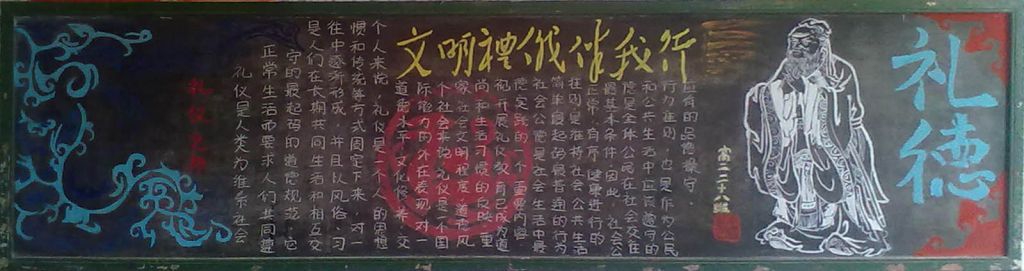 礼德
文明禮儀伴我行
礼仪之邦
礼仪是人类为维系社会
正常生活而要求人们共同遵
守的最起码的道德规范。它
是人们在长期共同生活和相互交
往中逐渐形成,并且以风俗、习
惯和传统等方式固定下来。对一
个人来说,礼仪是一个人的思想
道德水平、文化修养、交
际能力的外在表现,对一
个社会来说,礼仪是一个国
家社会文明程度、道德风
尚和生活习惯的反映。重
视开展礼仪教育已成为道
德实践的 重要内容
社会公德是社会生活中最
简单最起码最普通的行为
准则是维持社会公共生活
正常,有序,健康进行的
最基本条件。因此,社会公
德是全体公民在社会交往
和公共生活中应该遵守的
行为准则,也是作为公民
应有的品德操守。
高二二十八班